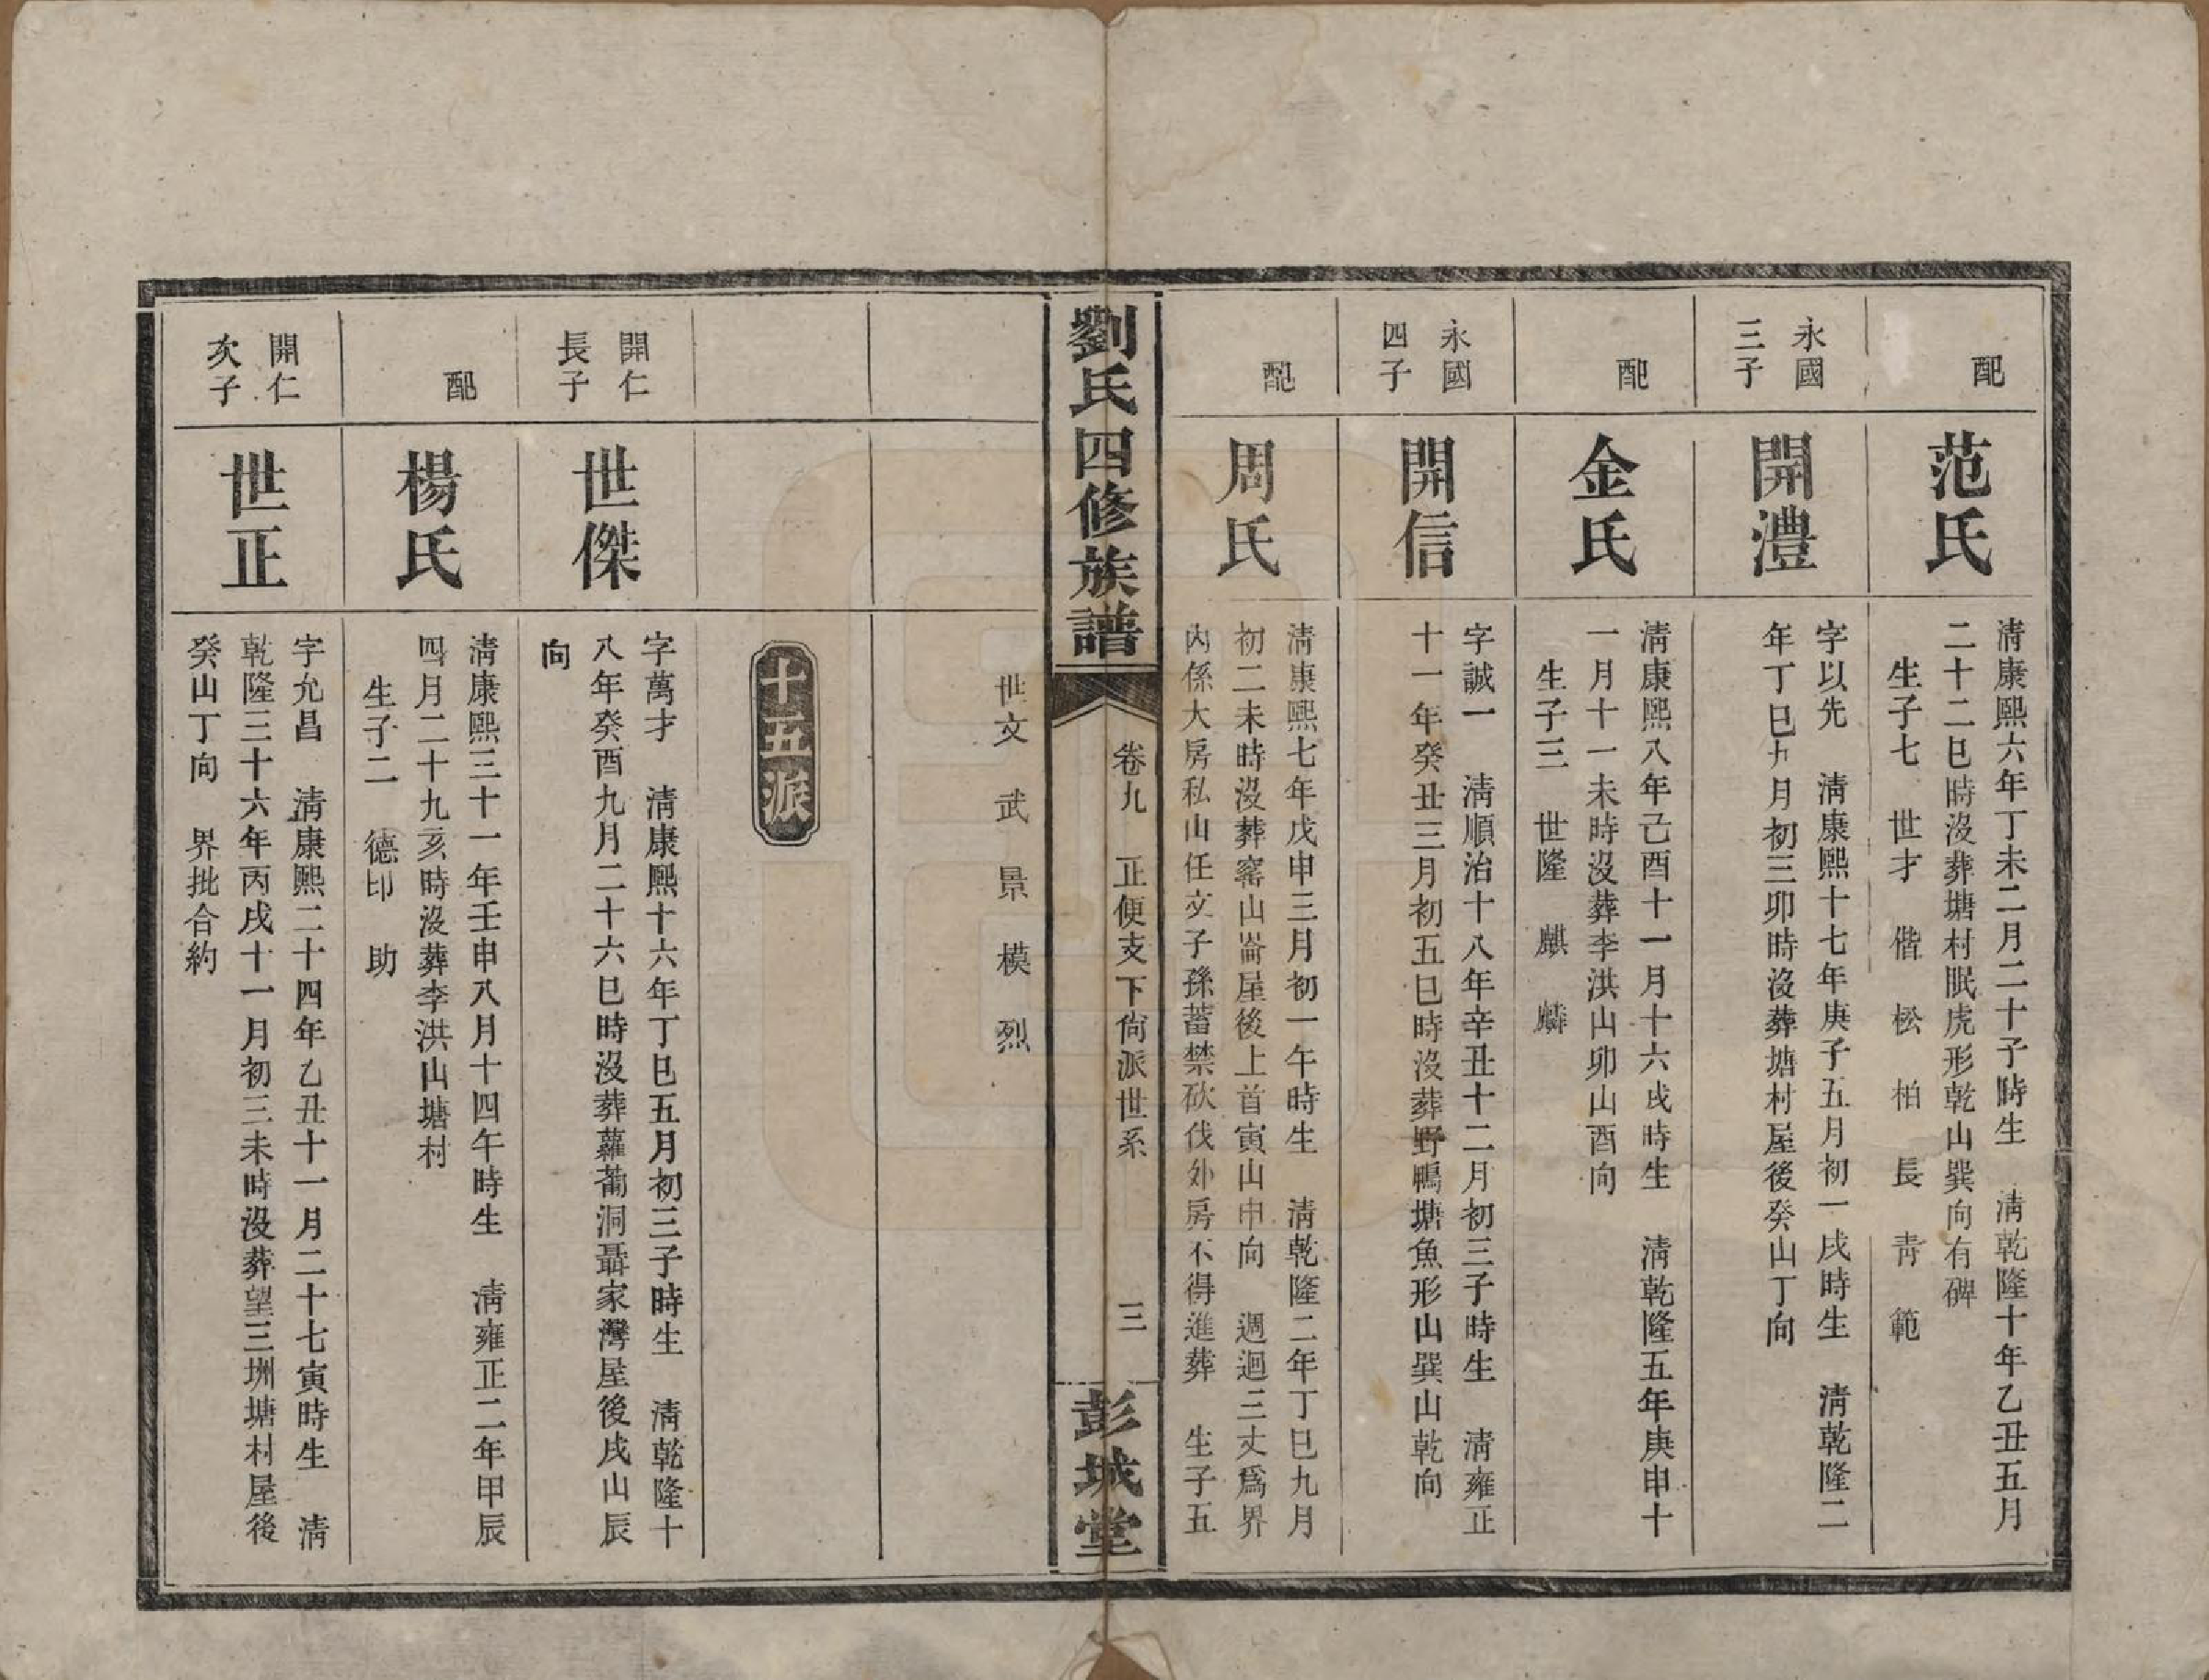 配
范氏
清康熙六年丁未二月二十子時生　清乾隆十年乙丑五月
二十二巳時沒葬塘村眠虎形乾山巽向有碑
生子七　世才　偕　松　柏　長　青　範
永國
三子
開澧
字以先　清康熙十七年庚子五月初一戌時生　清乾隆二
年丁巳九月初三卯時沒葬塘村屋後癸山丁向
配
金氏
清康熙八年己酉十一月十六戌時生　清乾隆五年庚申十
一月十一未時沒葬李洪山卯山酉向
生子三　世隆　麒　麟
永國
四子
開信
字誠一　清順治十八年辛丑十二月初三子時生　清雍正
十一年癸丑三月初五巳時沒葬野鴨塘魚形山巽山乾向
配
周氏
清康熙七年戊申三月初一午時生　清乾隆二年丁巳九月
初二未時沒葬窰山崙屋後上首寅山申向　週迴三丈爲界
內係大房私山任文子孫蓄禁砍伐外房不得進葬　生子五
劉氏四修族譜
卷九　正便支下尙派世系
三
彭城堂
世文　武　景　模　烈
十五派
開仁
長子
世傑
字萬才　清康熙十六年丁巳五月初三子時生　清乾隆十
八年癸酉九月二十六巳時沒葬蘿蔔洞聶家灣屋後戌山辰
向
配
楊氏
清康熙三十一年壬申八月十四午時生　清雍正二年甲辰
四月二十九亥時沒葬李洪山塘村
生子二　德印　助
開仁
次子
世正
字允昌　清康熙二十四年乙丑十一月二十七寅時生　清
乾隆三十六年丙戌十一月初三未時沒葬望三坰塘村屋後
癸山丁向　界批合約